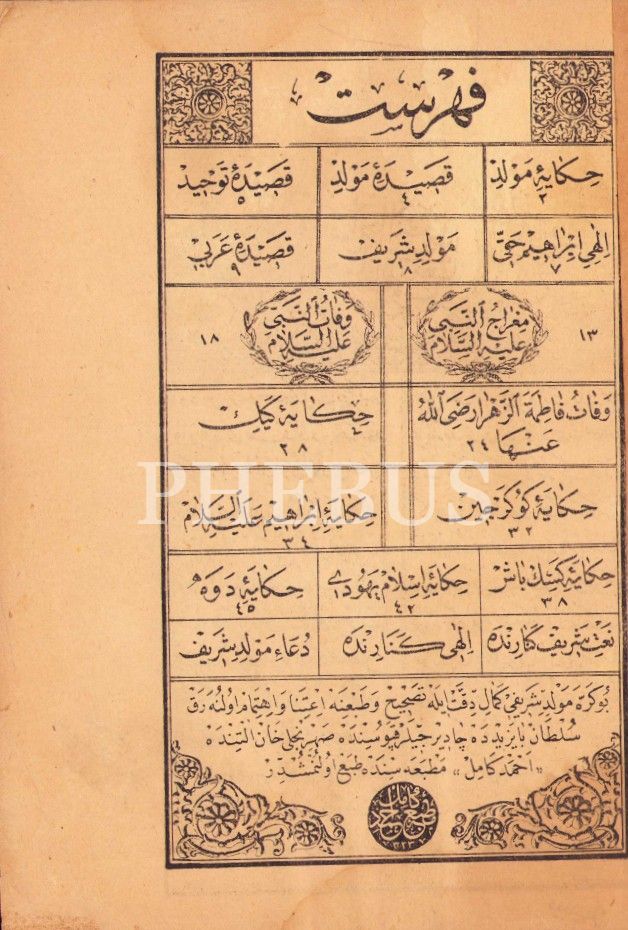 فهرست
حكايهٔ مولد ٢ قصيدهٔ مولد ٤ قصيدهٔ توحيد ٥
الهى ابراهيم حقى ٧ مولد شريف ٨ قصيدهٔ عربى ٩
١٣ معراج النبى عليه السلام وفات النبى عليه السلام ١٨
وفات فاطمة الزهرا رضى الله عنها ٢٤ حكايهٔ كيك ٢٨
حكايهٔ كوكرجين ٣٢ حكايهٔ ابراهيم عليه السلام ٣٤
حكايهٔ كسك باش ٣٨ حكايهٔ اسلام يهودى ٤٢ حكايهٔ دوه ٤٥
نعت شريف كنارنده الهى كنارنده دعاء مولد شريف
بو كره مولد شريفى كمال دقتله تصحيح وطبعنه اعتنا واهتمام اولنه رق
سلطان بايزيدده چاديرجيلر قپوسنده صهرنجلى خان التنده
«احمد كامل» مطبعه سنده طبع اولنمشدر
PHEBUS